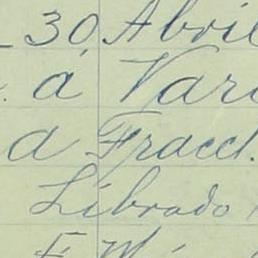 30, Abril
á Vari
a Fracct.
Librado